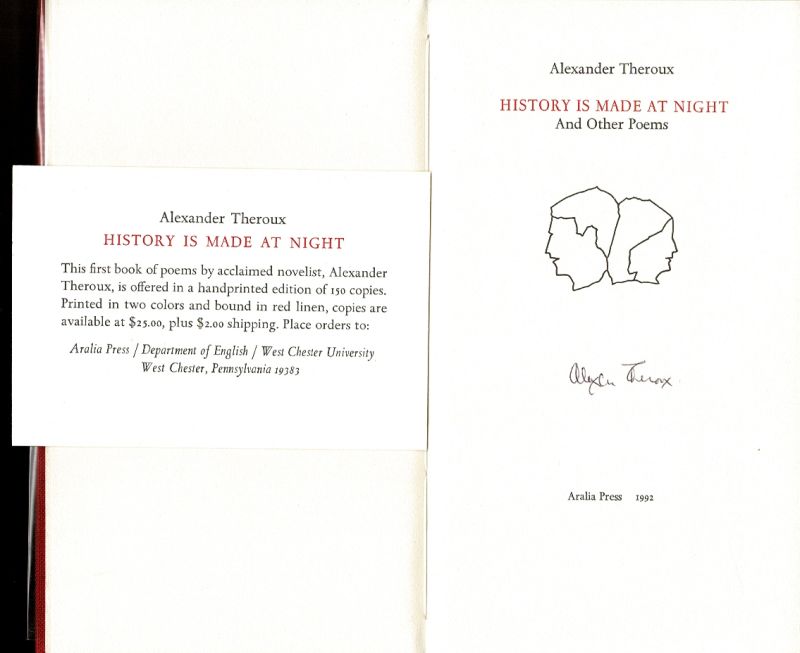 Alexander Theroux
HISTORY IS MADE AT NIGHT
This first book of poems by acclaimed novelist, Alexander
Theroux, is offered in a handprinted edition of 150 copies.
Printed in two colors and bound in red linen, copies are
available at $25.00, plus $2.00 shipping. Place orders to:
Aralia Press / Department of English / West Chester University
West Chester, Pennsylvania 19383
Alexander Theroux
HISTORY IS MADE AT NIGHT
And Other Poems
Alexander Theroux
Aralia Press 1992